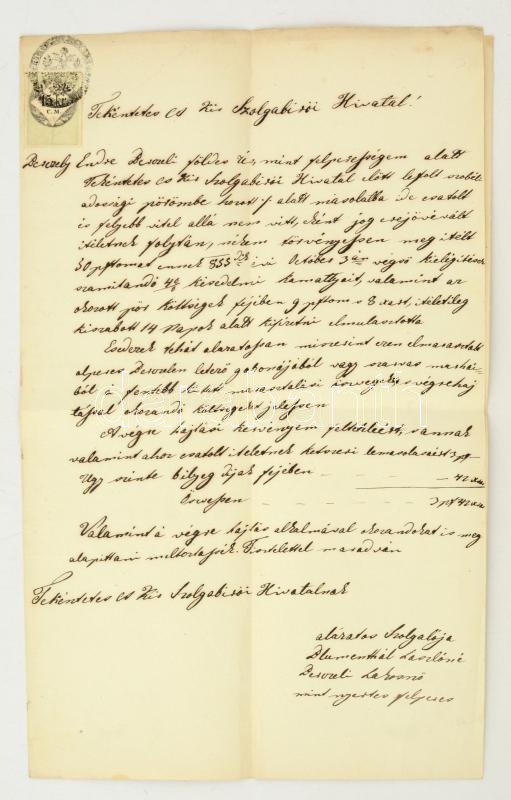 15 kr.
C. M.
Tekéntetes Cs Kir Szolgabírói Hivatal!
Endre Deszeli földes Úr, mint felperességem alatt
Tekéntetes Cs Kir Szolgabírói Hivatal előtt lefolt szobéli
adosági pörömbe alatt másolatba ide csatolt
és feljebb vitel alá nem vitt, jog erejövé vált
itéletnek folytán, nékem törvényessen meg itélt
50 pftomot ennek 855 évi Octobés 3 végső kielégitéséig
számitandó 4 késedelmi kamattyait, valamint az
okozott pör költségek fejében 9 pftom s 8 xast, itéletileg
kiszabott 14 Napok alatt kifizetni elmulasztotta
Esedezek tehát alázatossan miszerint ezen elmarasztalt
alperes Deszelen lévő vagy szarvas marhái-
ból a fentebb ki tett marasztalási összveg végrehaj
tással okozandó költségeket
A végre hajtási kérvényem felteléért, s annak
valamint ahoz csatolt itéletnek kétszeri lemásolásáért 3 pft
Ugy szinte bélyeg díjak fejében — 42 xas
Öszvessen — 3 pft 42 xas
Valamint a végre hajtás alkalmával okozandokat is meg
alapittani méltoztassék. Tisztelettel maradván
Tekéntetes Cs Kir Szolgabírói Hivatalnak
alázatos Szolgálója
Blumenthál Lászlóné
Deszeli Lakosnő
mint nyertes felperes